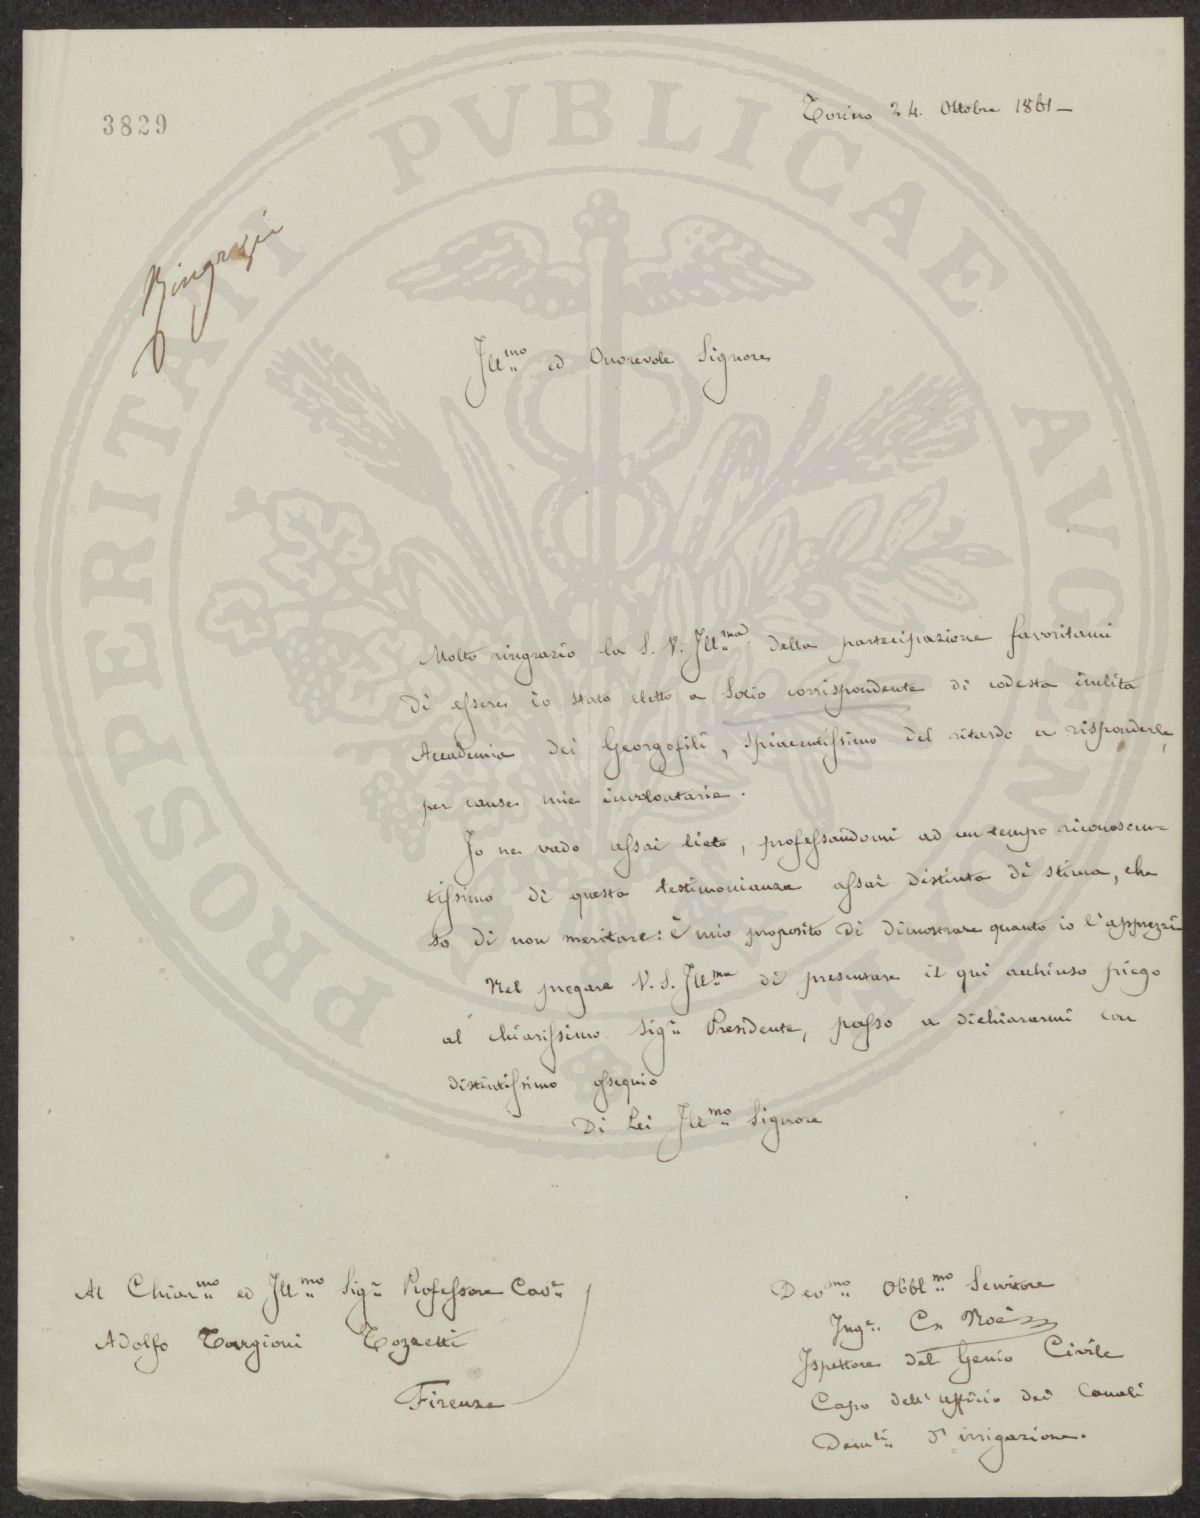 3829
Torino 24. Ottobre 1861 -
Ringrazi
Ill.mo ed Onorevole Signore
Molto ringrazio la S. V. Ill.ma della partecipazione favoritami
di essere io stato eletto a Socio corrispondente di codesta inclita
Accademia dei Georgofili, spiacentissimo del ritardo a risponderle,
per cause mie involontarie.
Io ne vado assai lieto, professandomi ad un tempo riconoscen=
tissimo di questa testimonianza assai distinta di stima, che
so di non meritare: è mio proposito di dimostrare quanto io l'apprezzi
Nel pregare V. S. Ill.ma di presentare il qui acchiuso piego
al chiarissimo Sig.r Presidente, passo a dichiararmi con
distintissimo ossequio
Di Lei Ill.mo Signore
Al Chiar.mo ed Ill.mo Sig.r Professore Cav.e
Adolfo Targioni Tozzetti
Firenze
Dev.mo Obbl.mo Servitore
Ing.e C. Noè
Ispettore del Genio Civile
Capo dell'ufficio dei Canali
Dem.li d'irrigazione.
PROSPERITATI PVBLICAE AVGENDAE